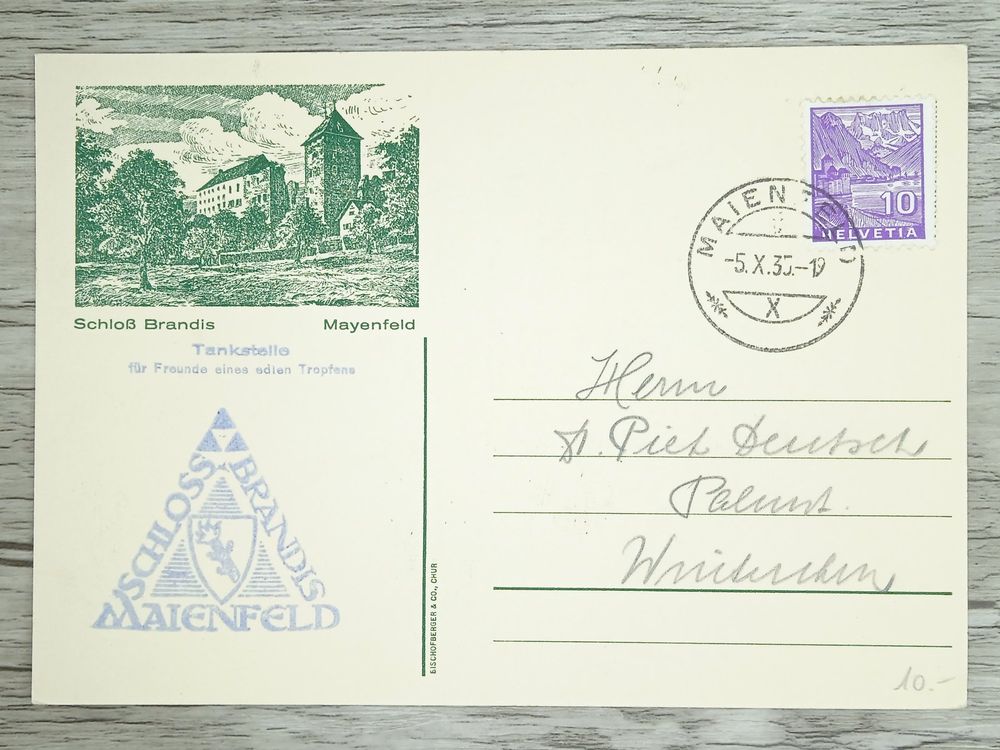 Schloß Brandis Mayenfeld
Tankstelle
für Freunde eines edlen Tropfens
SCHLOSS BRANDIS
MAIENFELD
BISCHOFBERGER & CO., CHUR
10
HELVETIA
MAIENFELD
-5.X.35.-19
X
Herrn
Piet Deutsch
10.-